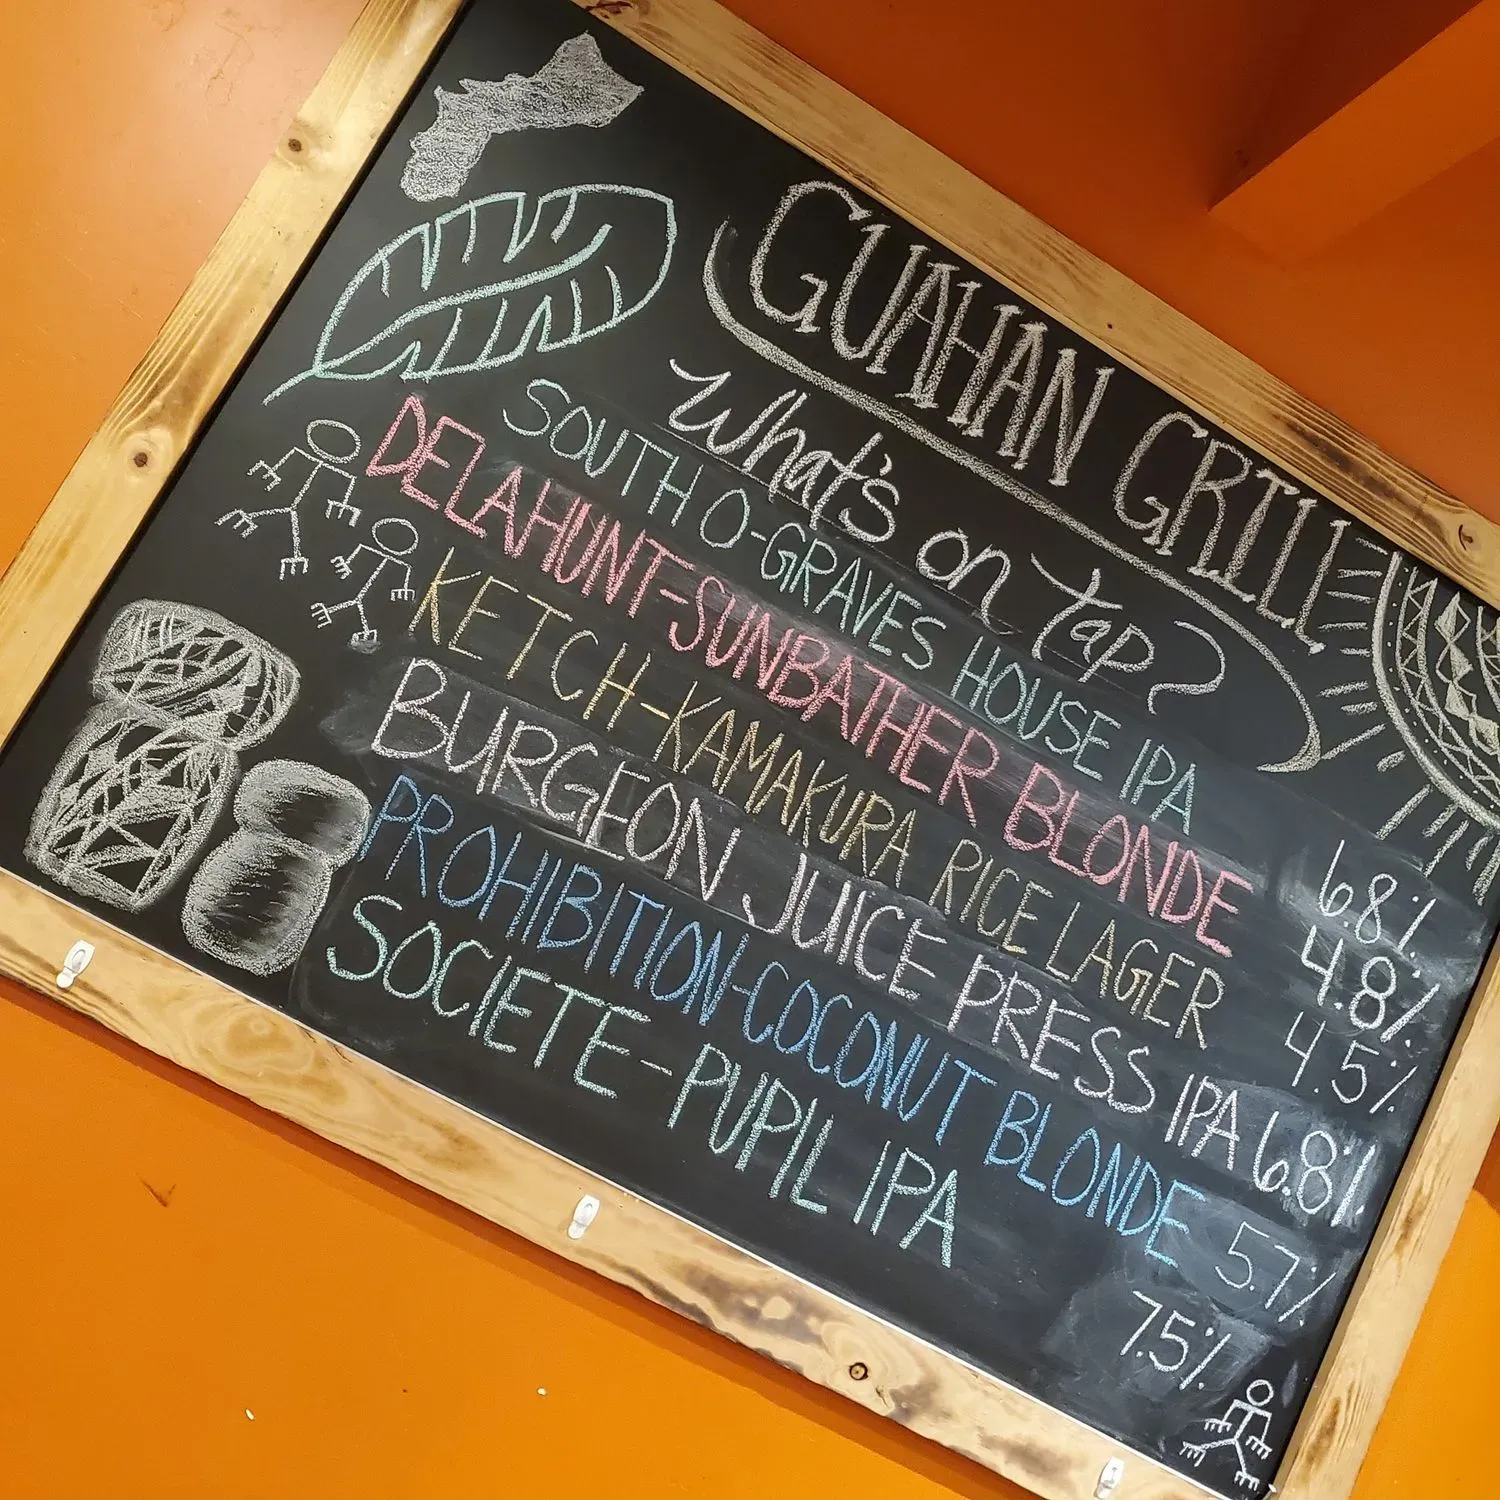 GUAHAN GRILL
What's on Tap?
SOUTH O-GRAVES HOUSE IPA 6.8%
DELAHUNT-SUNBATHER BLONDE 4.8%
KETCH-KAMAKURA RICE LAGER 4.5%
BURGEON JUICE PRESS IPA 6.8%
PROHIBITION-COCONUT BLONDE 5.7%
SOCIETE-PUPIL IPA 7.5%